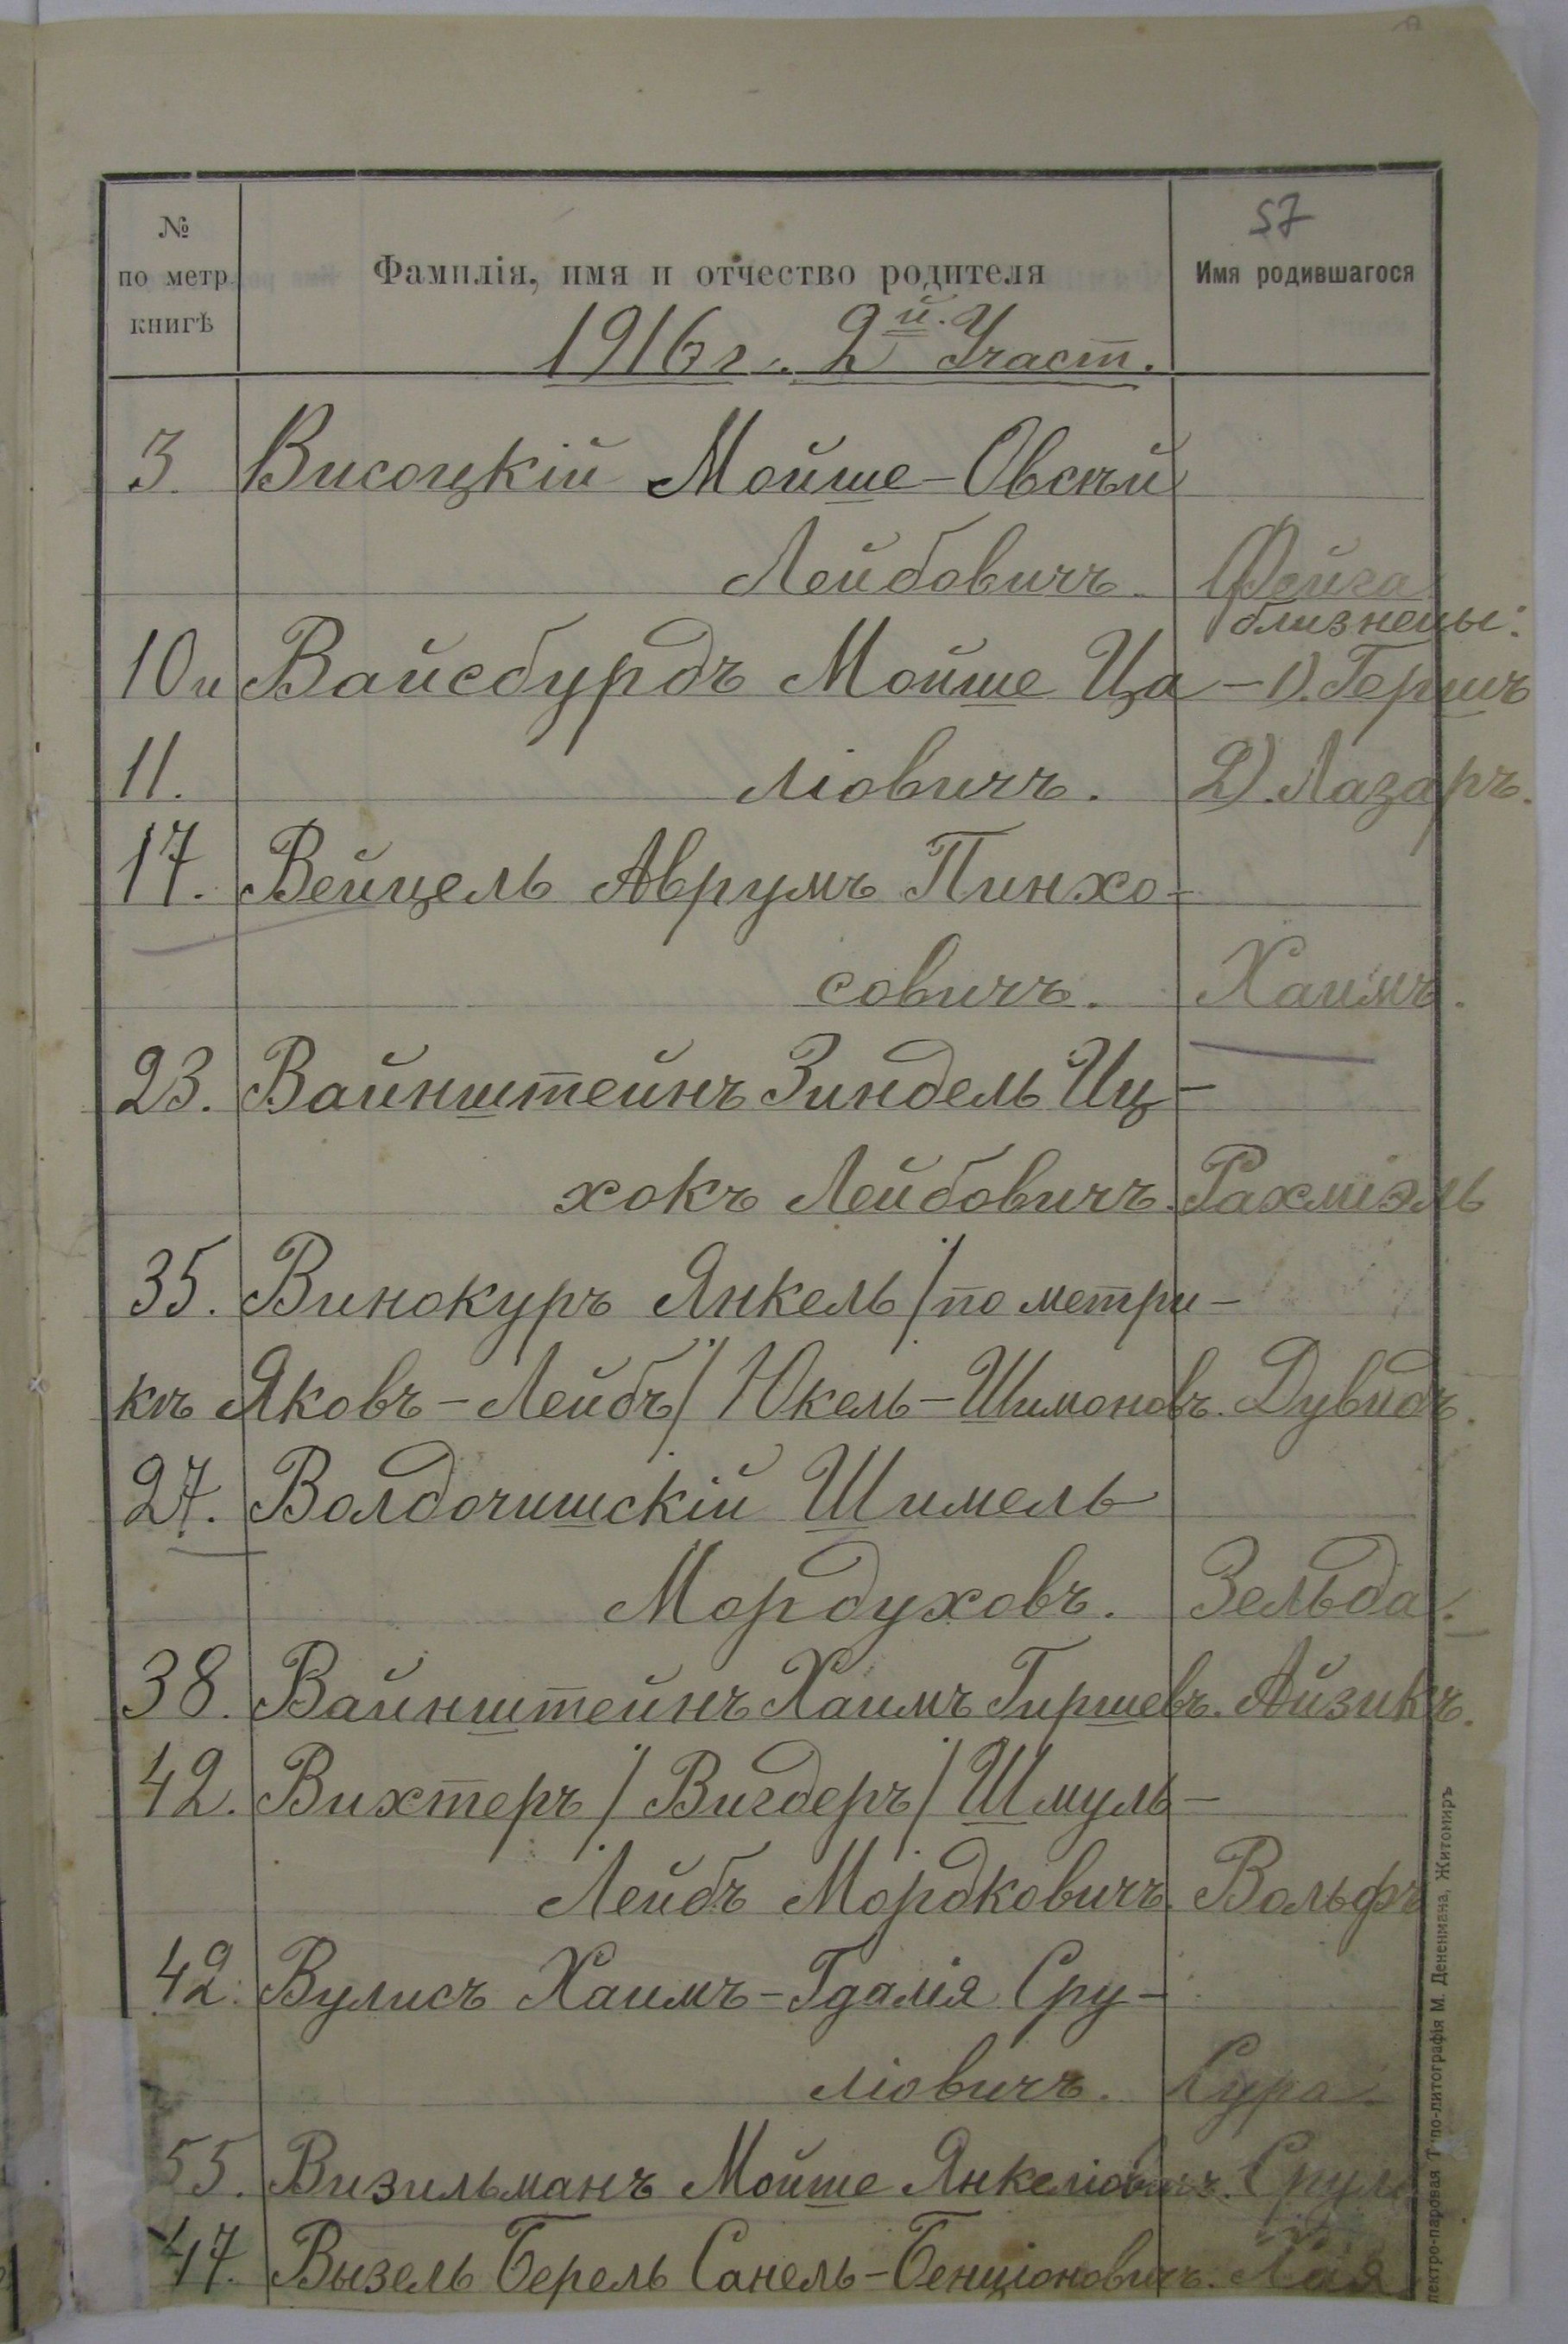 57
№ по метр. книгѣ
Фамилія, имя и отчество родителя
Имя родившагося
1916 г. 2й. Участ.
3. Висоцкій Мойше-Овсѣй
Лейбовичъ. Фейга
близнецы:
10 и Вайсбурдъ Мойше Ца- 1). Гершъ
11. ліовичъ. 2). Лазаръ.
17. Вейцель Аврумъ Пинхо-
совичъ. Хаимъ.
23. Вайнштейнъ Зиндель Иц-
хокъ Лейбовичъ. Рахміэль
35. Винокуръ Янкель /по метри-
кѣ Яковъ-Лейбъ/ Юкель-Шимоновъ. Дувидъ.
27. Волдочишскій Шимель
Мордуховъ. Зельда.
38. Вайнштейнъ Хаимъ Гиршевъ. Айзикъ.
42. Вихтеръ /Вигдеръ/ Шмуль-
Лейбъ Мордковичъ. Вольфъ
42. Вулисъ Хаимъ-Гдалія Сру-
ліовичъ. Сура.
55. Визильманъ Мойше Янкеліовичъ. Сруль
47. Вызель Берель Санель-Бенціоновичъ. Хая
лектро-паровая Типо-литографія М. Дененмана, Житомиръ